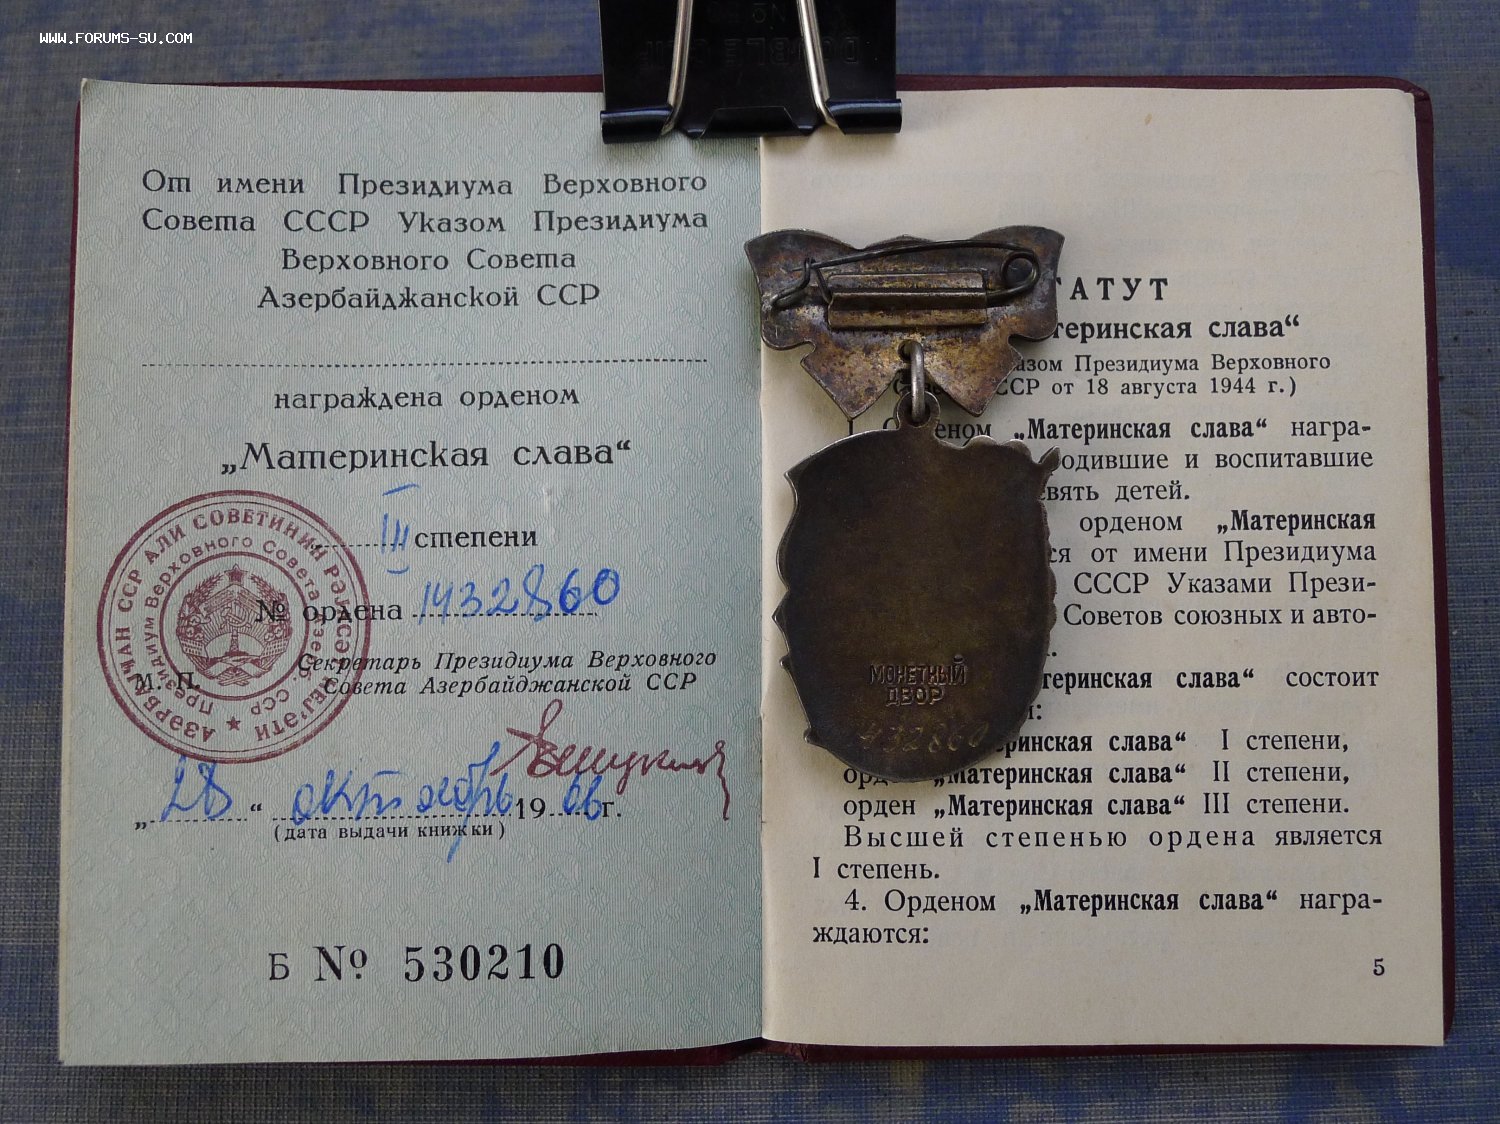 WWW.FORUMS-SU.COM
От имени Президиума Верховного
Совета СССР Указом Президиума
Верховного Совета
Азербайджанской ССР
награждена орденом
„Материнская слава“
III степени
№ ордена 1432860
Секретарь Президиума Верховного
Совета Азербайджанской ССР
М. П.
АЗӘРБАЈҸАН ССР АЛИ СОВЕТИНИН РӘЈАСӘТ ҺЕЈ'ӘТИ
Президиум Верховного Совета Азерб. ССР
„28“ октября 1966 г.
(дата выдачи книжки)
Б № 530210
ТАТУТ
теринская слава“
азом Президиума Верховного
ССР от 18 августа 1944 г.)
1. О еном „Материнская слава“ награ-
родившие и воспитавшие
евять детей.
орденом „Материнская
ся от имени Президиума
СССР Указами Прези-
Советов союзных и авто-
теринская слава“ состоит
ринская слава“ I степени,
орд „Материнская слава“ II степени,
орден „Материнская слава“ III степени.
Высшей степенью ордена является
I степень.
4. Орденом „Материнская слава“ награ-
ждаются:
5
МОНЕТНЫЙ
ДВОР
432860